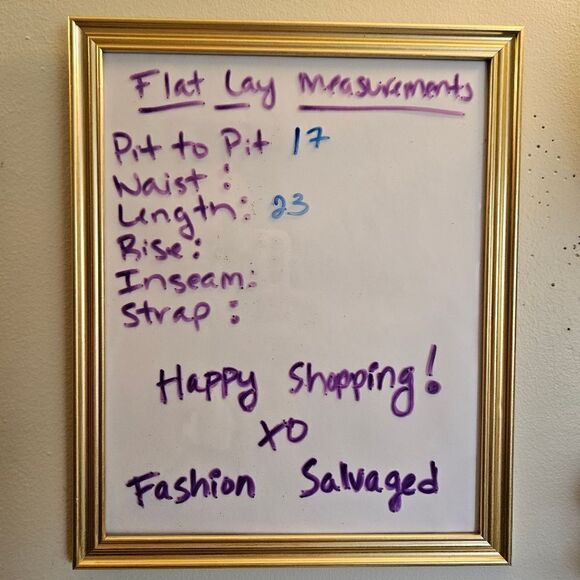 Flat Lay Measurements
Pit to Pit 17
Waist :
Length: 23
Rise:
Inseam:
Strap :
Happy Shopping!
XO
Fashion Salvaged